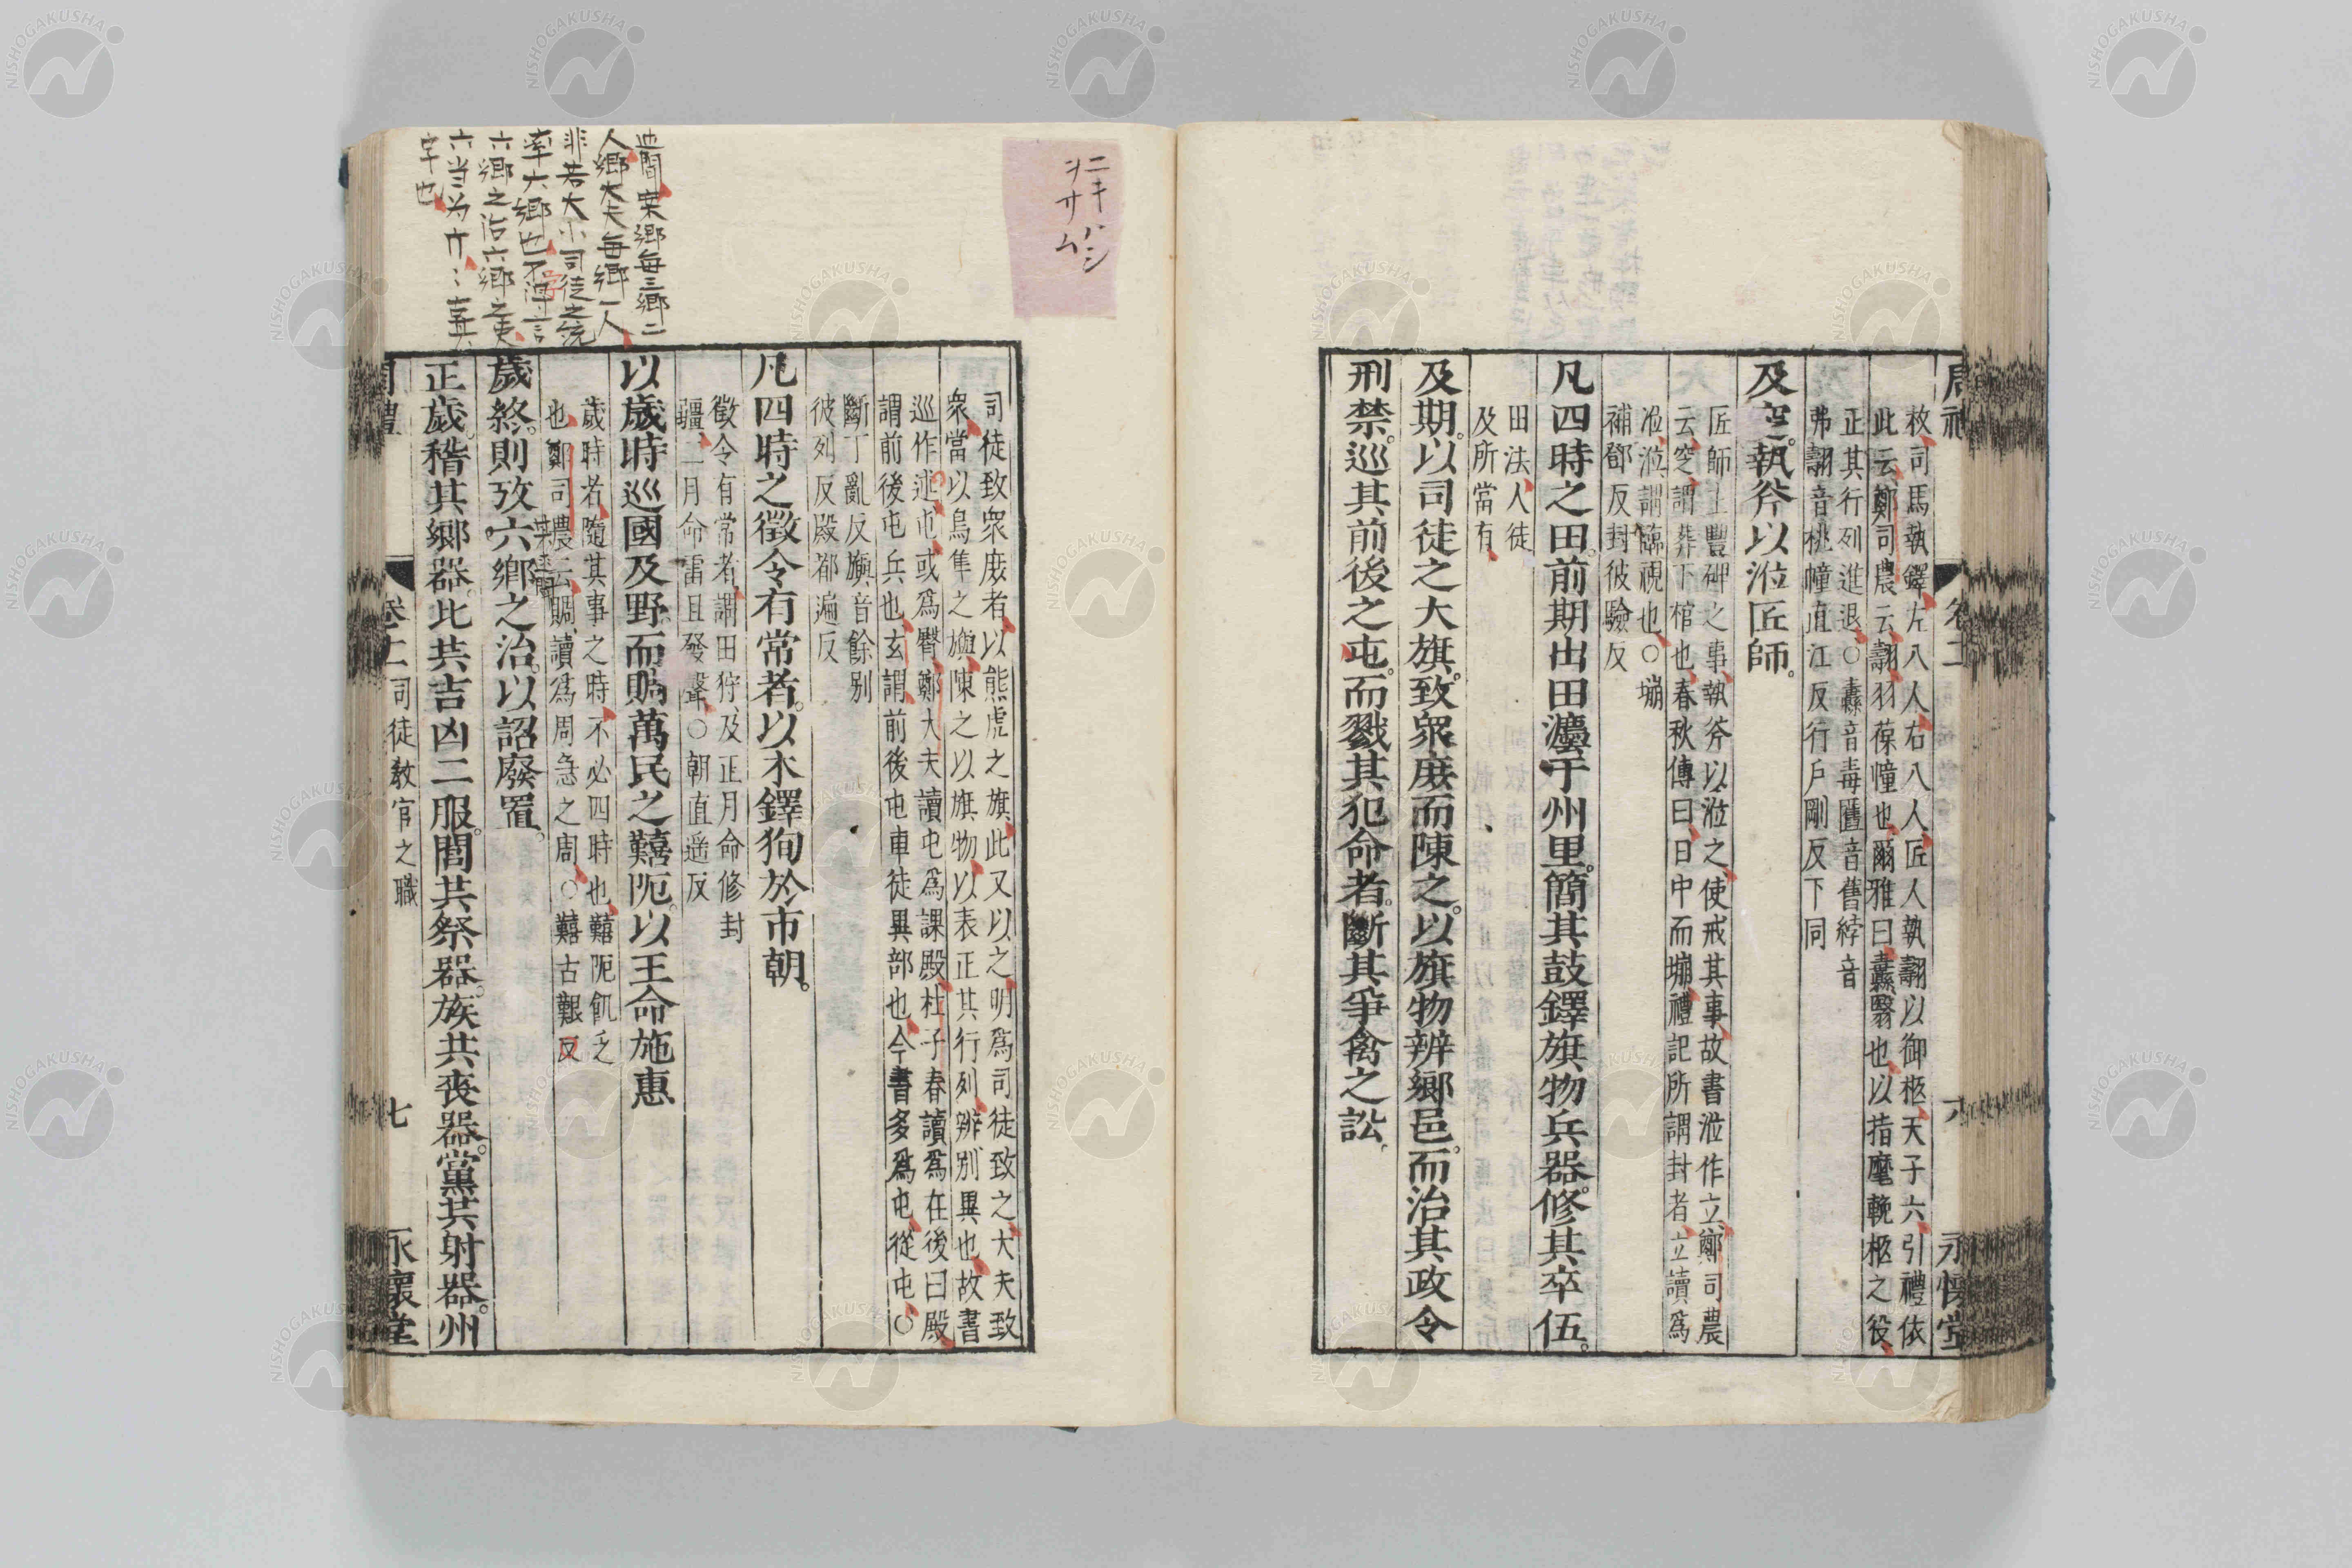 周禮 卷十二 六 永懷堂
枚、司馬執鐸、左八人、右八人、匠人執翿以御柩、天子六引、禮依
此云、鄭司農云、翿、羽葆幢也、爾雅曰、纛、翳也、以指麾輓柩之役、
正其行列進退、○纛音毒匶音舊綍音
弗翿音桃幢直江反行戶剛反下同
及窆。執斧以涖匠師。
匠師主豐碑之事、執斧以涖之、使戒其事、故書涖作立、鄭司農
云、窆、謂葬下棺也、春秋傳曰、日中而塴、禮記所謂封者、立讀爲
涖、涖、謂臨視也、○塴
補鄧反封彼驗反
凡四時之田。前期出田灋于州里。簡其鼓鐸旗物兵器。修其卒伍。
田法、人徒
及所當有、
及期。以司徒之大旗。致衆庶而陳之。以旗物辨鄉邑。而治其政令
刑禁。巡其前後之屯。而戮其犯命者。斷其爭禽之訟。
司徒致衆庶者、以熊虎之旗、此又以之、明爲司徒致之、大夫致
衆、當以鳥隼之旟、陳之以旗物、以表正其行列、辨、別異也、故書
巡作述、屯、或爲臀、鄭大夫讀屯爲課殿、杜子春讀爲在後曰殿、
謂前後屯兵也、玄謂、前後屯車徒異部也、今書多爲屯、從屯、○
斷丁亂反旟音餘別
彼列反殿都遍反
凡四時之徵令有常者。以木鐸狥於市朝。
徵令有常者、謂田狩、及正月命修封
疆、二月命雷且發聲、○朝直遥反
以歲時巡國及野。而賙萬民之囏阨。以王命施惠
歲時者、隨其事之時、不必四時也、囏阨飢乏
也、鄭司農云、賙、讀爲周急之周、○囏古艱反
歲終。則攷六鄉之治。以詔廢置。
正歲。稽其鄉器。比共吉凶二服。閭共祭器。族共喪器。黨共射器。州
周禮 卷十二 司徒教官之職 七 永懷堂
人鄉大夫每鄉一人
非若大小司徒之統
率六鄉也不得言
六鄉之治六鄉之吏
字也
ニキハシ
ヲサム